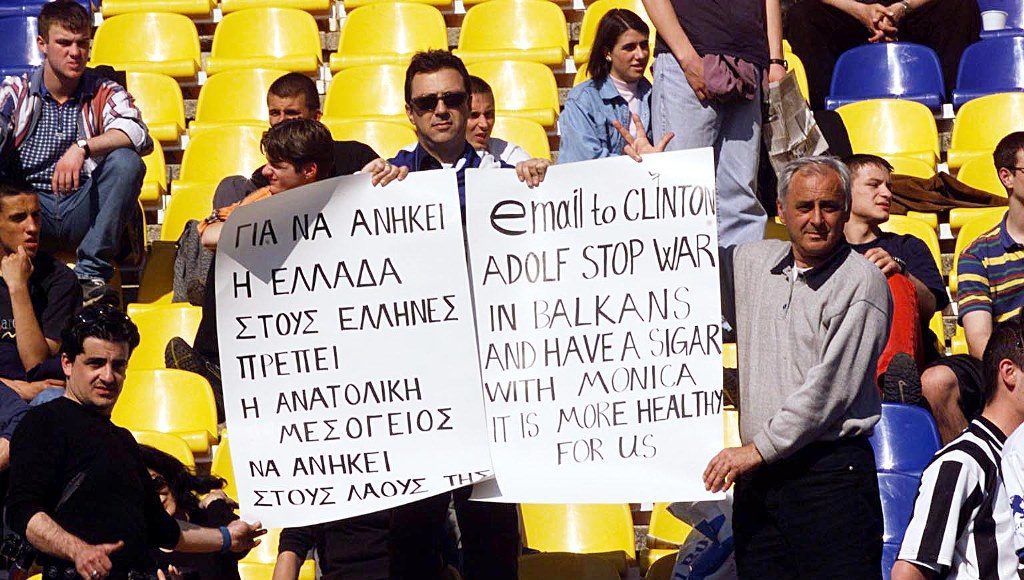 ΓΙΑ ΝΑ ΑΝΗΚΕΙ
Η ΕΛΛΑΔΑ
ΣΤΟΥΣ ΕΛΛΗΝΕΣ
ΠΡΕΠΕΙ
Η ΑΝΑΤΟΛΙΚΗ
ΜΕΣΟΓΕΙΟΣ
ΝΑ ΑΝΗΚΕΙ
ΣΤΟΥΣ ΛΑΟΥΣ ΤΗΣ
email to CLINTON
ADOLF STOP WAR
IN BALKANS
AND HAVE A SIGAR
WITH MONICA
IT IS MORE HEALTHY
FOR US